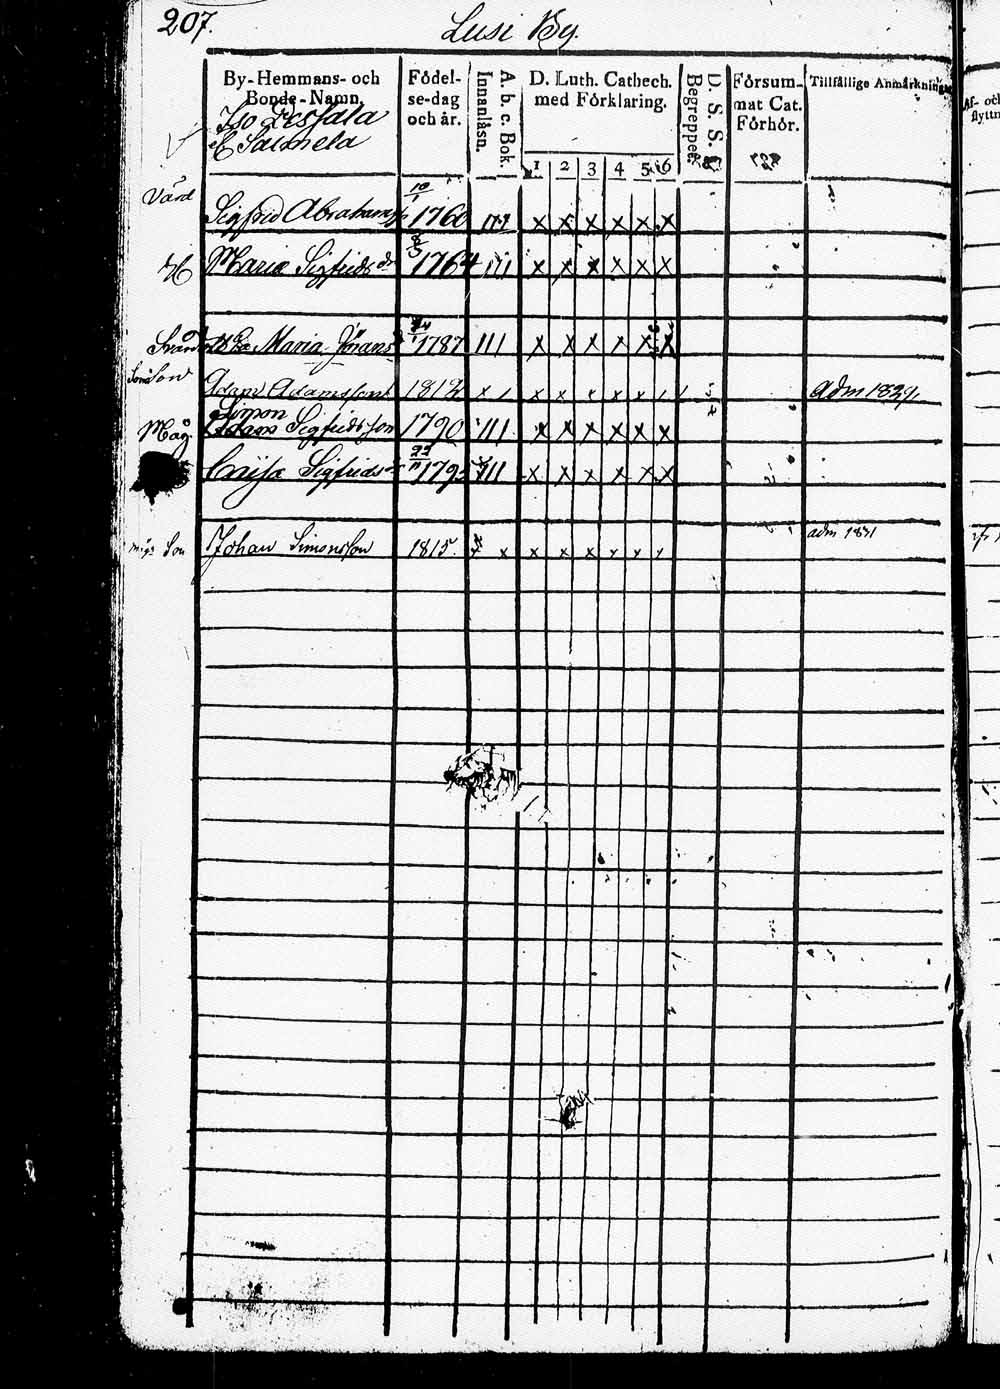 207.
Lusi By.
By-Hemmans- och Bonde-Namn.
Födel-se-dag och år.
A. b. c. Bok. Innanläsn.
D. Luth. Cathech. med Förklaring.
1 2 3 4 5 6
D. S. S. Begreppet.
Försum-mat Cat. Förhör.
Tillfällige Anmärkningar
Iso
& Salmela
Värd Sigfrid Abrahamss 10/1 1760 x x x x x x
H Maria Sigfrids dr 1764 III x x x x x x
Maria Jörans 1787 III x x x x x x
Son Adam Adamsson 1812 x / x x x x x / / adm 1829
Måg Simon
Adam Sigfridsson 1790 III x x x x x x
Caisa Sigfrids 22/11 179 III x x x x x x
Son Johan Simonsson 1815. x x x x x x adm 1831